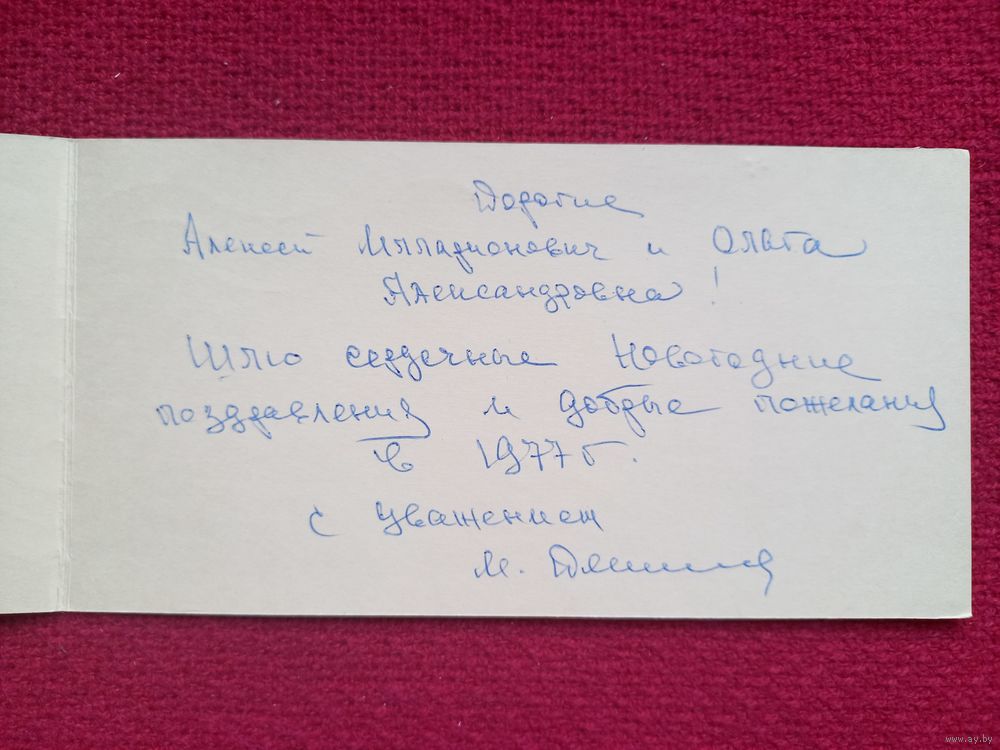 Дорогие
Алексей Илларионович и Ольга
Александровна!
Шлю сердечные Новогодние
поздравления и добрые пожелания
в 1977 г.
с уважением
М.
www.ay.by